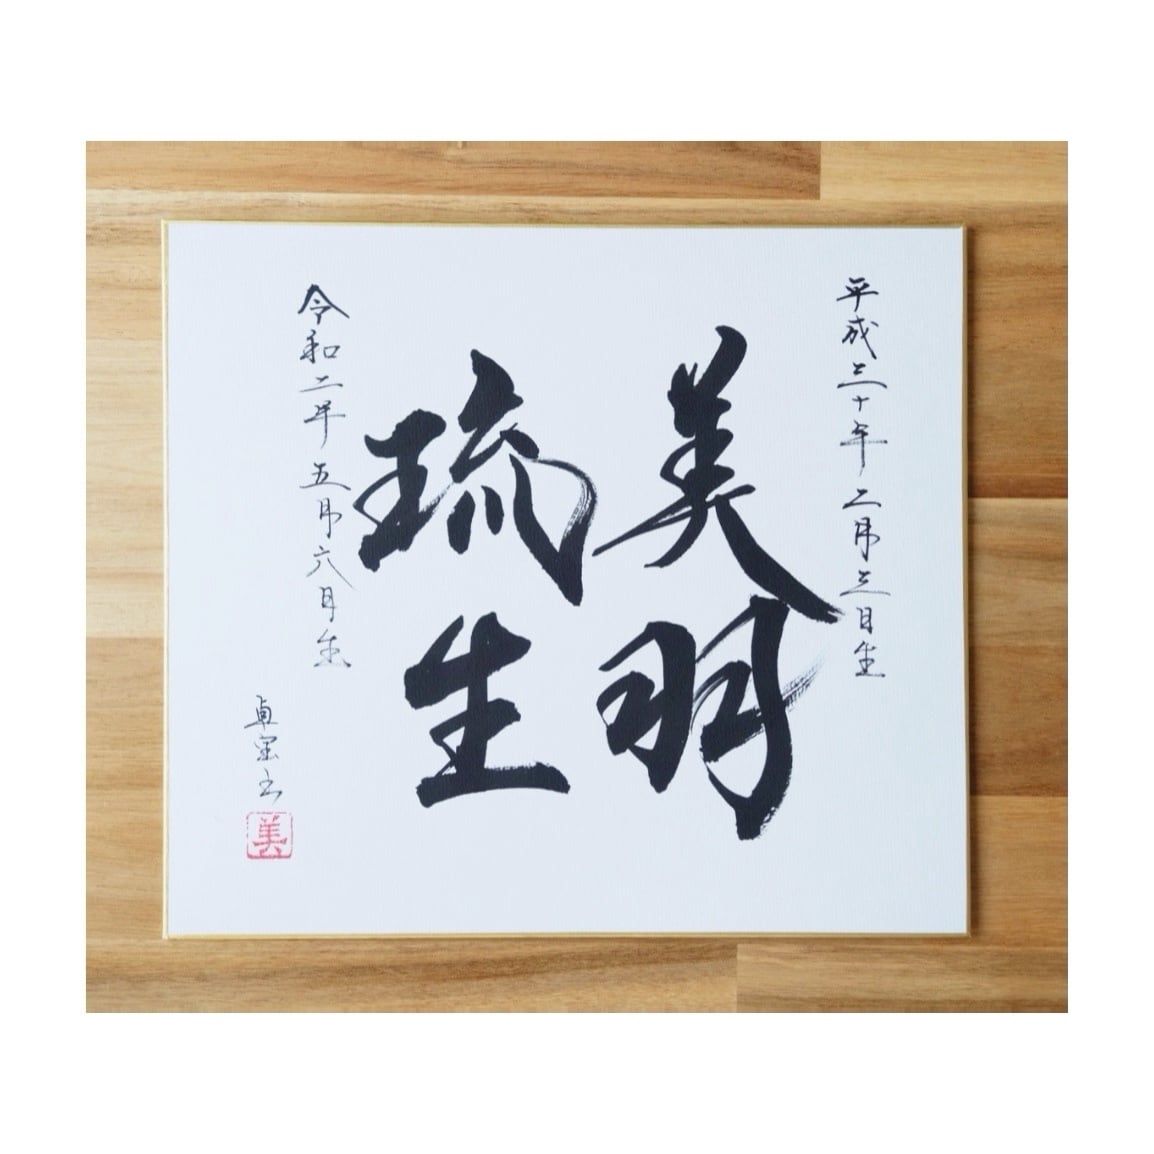 平成三十年二月三日生
美羽
琉生
令和二年五月六日生
美